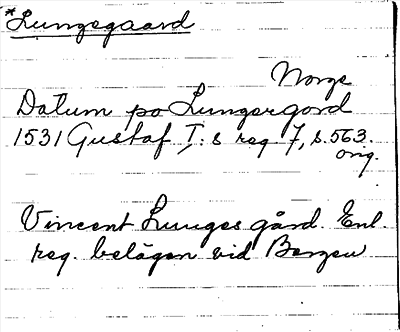 *Lungegaard
Norge
Datum po Lungergord
1531 Gustaf I:s reg 7, s. 563.
orig.
Vincent Lunges gård. Enl.
reg. belägen vid Bergen